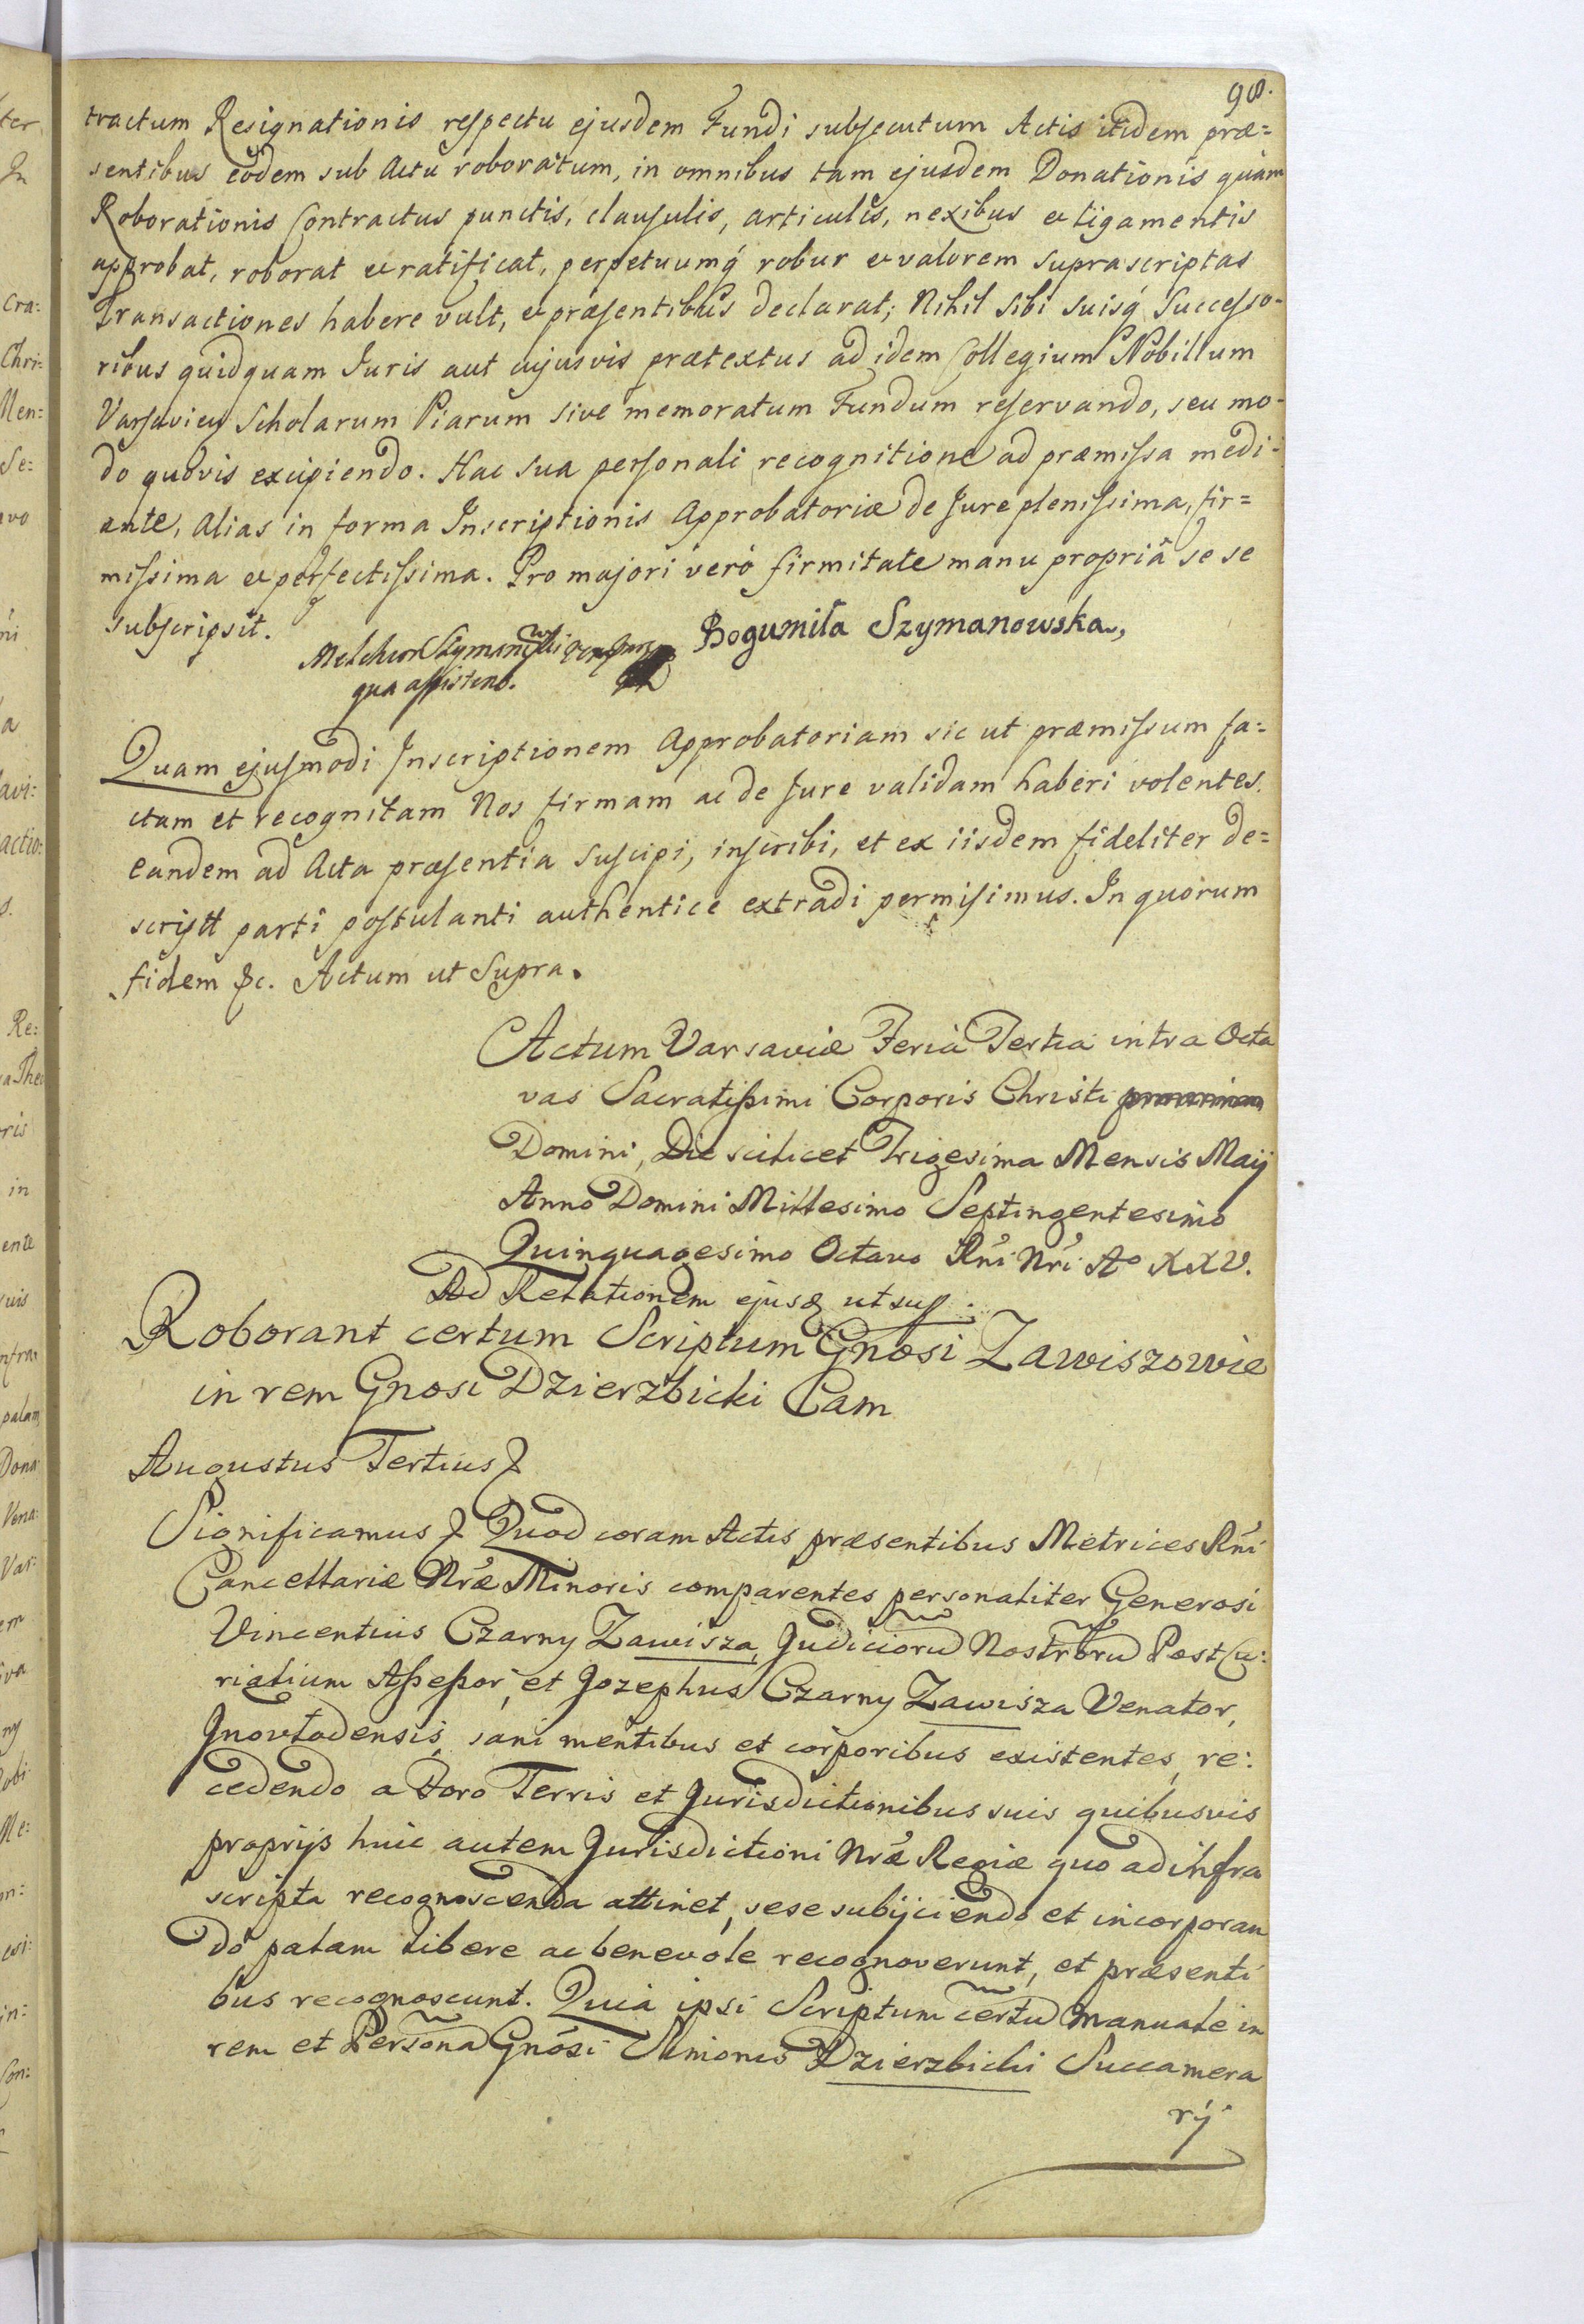 98.
tractum Resignationis respectu ejusdem Fundi subsecutum Actis itidem præ=
sentibus eodem sub Actu roboratum, in omnibus tam ejusdem Donationis quàm
Roborationis Contractus punctis, clausulis, articulis, nexibus et ligamentis
approbat, roborat et ratificat, perpetuumq́ robur et valorem suprascriptas
Transactiones habere vult, et præsentibus declarat; Nihil sibi suisq́ Successo-
ribus quidquam Juris aut cujusvis prætextus ad idem Collegium Nobilium
Varsavien Scholarum Piarum sive memoratum Fundum reservando, seu mo-
do quovis excipiendo. Hac sua personali recognitione ad præmissa medi-
ante, alias in forma Inscriptionis Approbatoriæ de Jure plenissima, fir=
missima et perfectissima. Pro majori verò firmitate manu propriâ se se
subscripsit.
Bogumiła Szymanowska,
Melchior Szymanowski
qua assistens.
Quam ejusmodi Inscriptionem Approbatoriam sic ut præmissum fa=
ctam et recognitam Nos firmam ac de Jure validam haberi volentes.
eandem ad Acta præsentia suscipi, inscribi, et ex iisdem fideliter de=
scriptt parti postulanti authentice extradi permisimus. In quorum
fidem &c. Actum ut Supra.
Actum Varsaviæ Feria Tertia intra Octa
vas Sacratissimi Corporis Christi
Domini, Die scilicet Trigesima Mensis Maij
Anno Domini Millesimo Septingentesimo
Quinquagesimo Octavo Rńi Nrí Aº XXV.
Ad Relationem ejusd ut sup.
Roborant certum Scriptum Gnosi Zawiszowie
in rem Gnosi Dzierzbicki Cam
Augustus Tertius &
Significamus & Quod coram Actis præsentibus Metrices Rńi
Cancellariæ Nrǽ Minoris comparentes personaliter Generosi
Vincentius Czarny Zawisza, Judicioru͂ Nostroru͂ PostCu:
rialium Assessor, et Jozephus Czarny Zawisza Venator
Jnovłodensis, sani mentibus et corporibus existentes, re:
cedendo a Foro Terris et Jurisdictionibus suis quibusvis
proprijs huic autem Jurisdictioni Nrǽ Regiæ quo ad infra
scripta recognoscenda attinet, sese subijciendo et incorporan
do palam libere ac benevole recognoverunt, et præsenti
bus recognoscunt. Quia ipsi Scriptum certu͂ manuale in
rem et Persona͂ Gnósi Simonis Dzierzbicki Succamera
rij